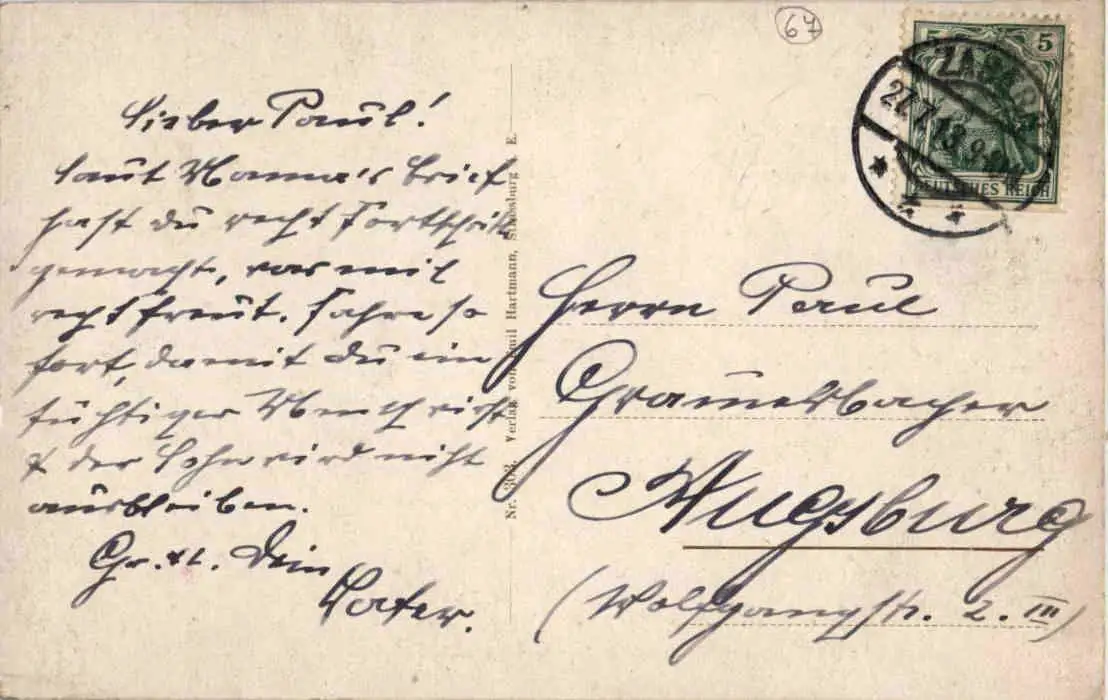 67
5 5
ZABERN
27.7.13.9-10V
DEUTSCHES REICH
Lieber Paul!
Laut Mama's Brief
hast du recht Fortschritte
gemacht, was mich
recht freut. Fahre so
fort, damit du ein
tüchtiger Mensch wirst
& der Lohn wird nicht
ausbleiben.
Gr. & Dein
Vater.
Nr. 303. Verlag von Emil Hartmann, Strassburg i. E.
Herrn Paul
Augsburg
(Wolfgangstr. 2. III)